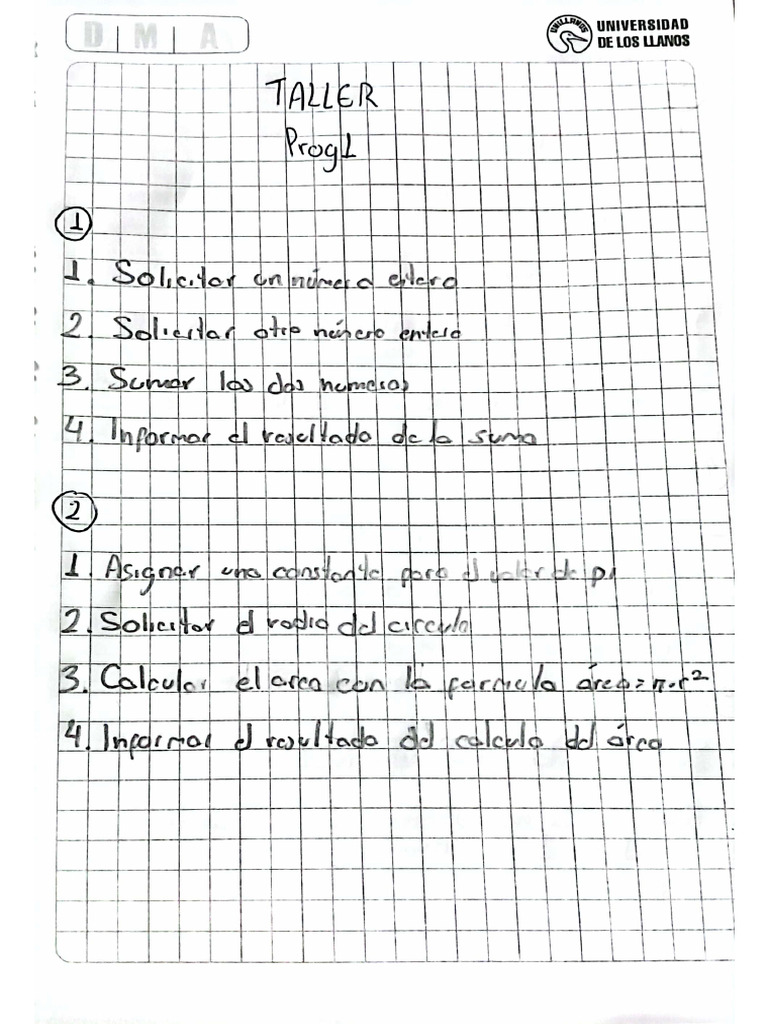 D | M | A
UNILLANOS
UNIVERSIDAD
DE LOS LLANOS
TALLER
Prog1
1
1. Solicitar un número entero
2. Solicitar otro número entero
3. Sumar los dos numeros
4. Informar el resultado de la suma
2
1. Asignar una constante para el valor de pi
2. Solicitar el radio del circulo
3. Calcular el area con la formula área = π·r²
4. Informar el resultado del calculo del área